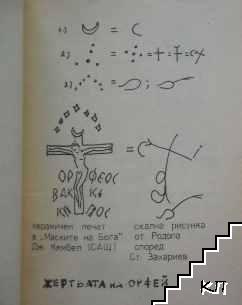 1) =
2) = = + = =
3) = ;
ОР ФЕОС
ВАК КІ
К ОС
=
керамичен печат
в „Маските на Бога"
Дж. Кембел (САЩ)
скална рисунка
от Родопа
според
Ст. Захариев
ЖЕРТВАТА НА ОРФЕЙ
КЛ